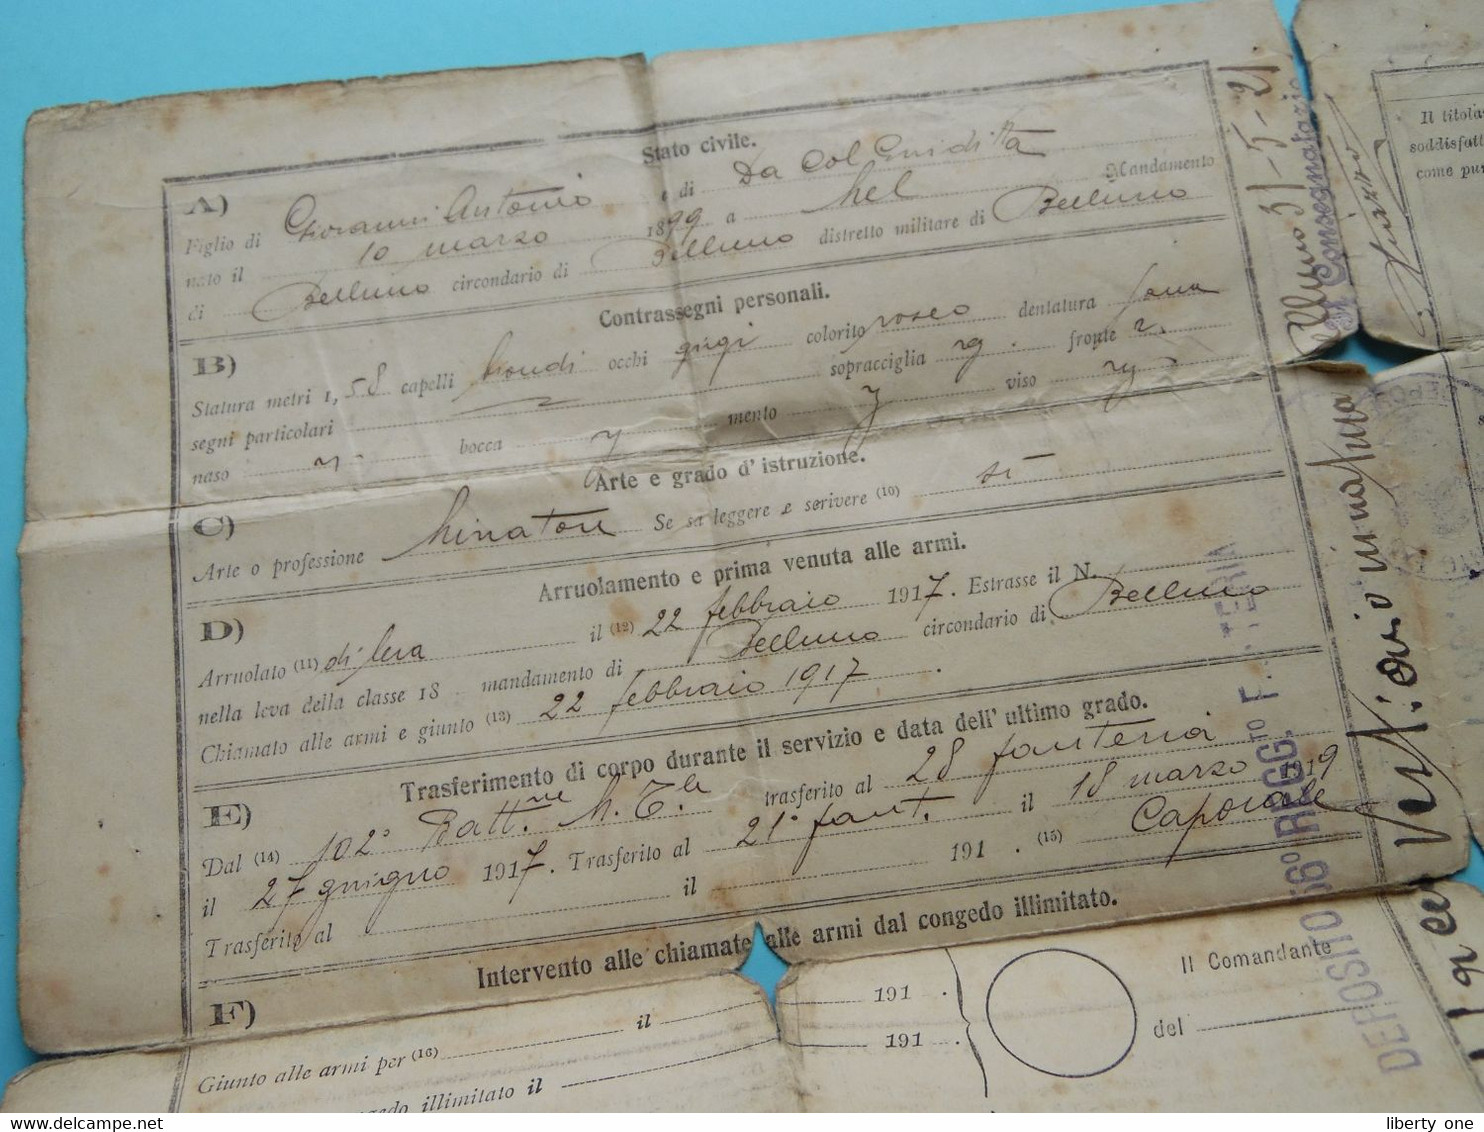 Stato civile.
A)
Figlio di Giovanni Antonio e di Da Col Giuditta
nato il 10 marzo 1899 a Mel Mandamento
di Belluno circondario di Belluno distretto militare di Belluno
Contrassegni personali.
B)
Statura metri 1,58 capelli biondi occhi grigi colorito roseo dentatura sana
segni particolari sopracciglia rg. fronte r.
naso bocca mento viso
Arte e grado d'istruzione.
C)
Arte o professione Minatore Se sa leggere e scrivere (10) si
Arruolamento e prima venuta alle armi.
D)
Arruolato (11) di leva il (12) 22 febbraio 1917. Estrasse il N.
nella leva della classe 18 mandamento di Belluno circondario di Belluno
Chiamato alle armi e giunto (13) 22 febbraio 1917.
Trasferimento di corpo durante il servizio e data dell'ultimo grado.
E)
Dal (14) 102° Batt.ne M. T.le trasferito al 28 fanteria
il 27 giugno 1917. Trasferito al 21° fant. il 18 marzo 1919
Trasferito al il 191 . (15) Caporale
Intervento alle chiamate alle armi dal congedo illimitato.
F)
Giunto alle armi per (16) il 191 .
congedo illimitato il 191 .
Il Comandante
del
31-5-21
Il Consegnatario
DEPOSITO 56° REGG.TO F TERIA
Il titola
soddisfatt
come pur
liberty one